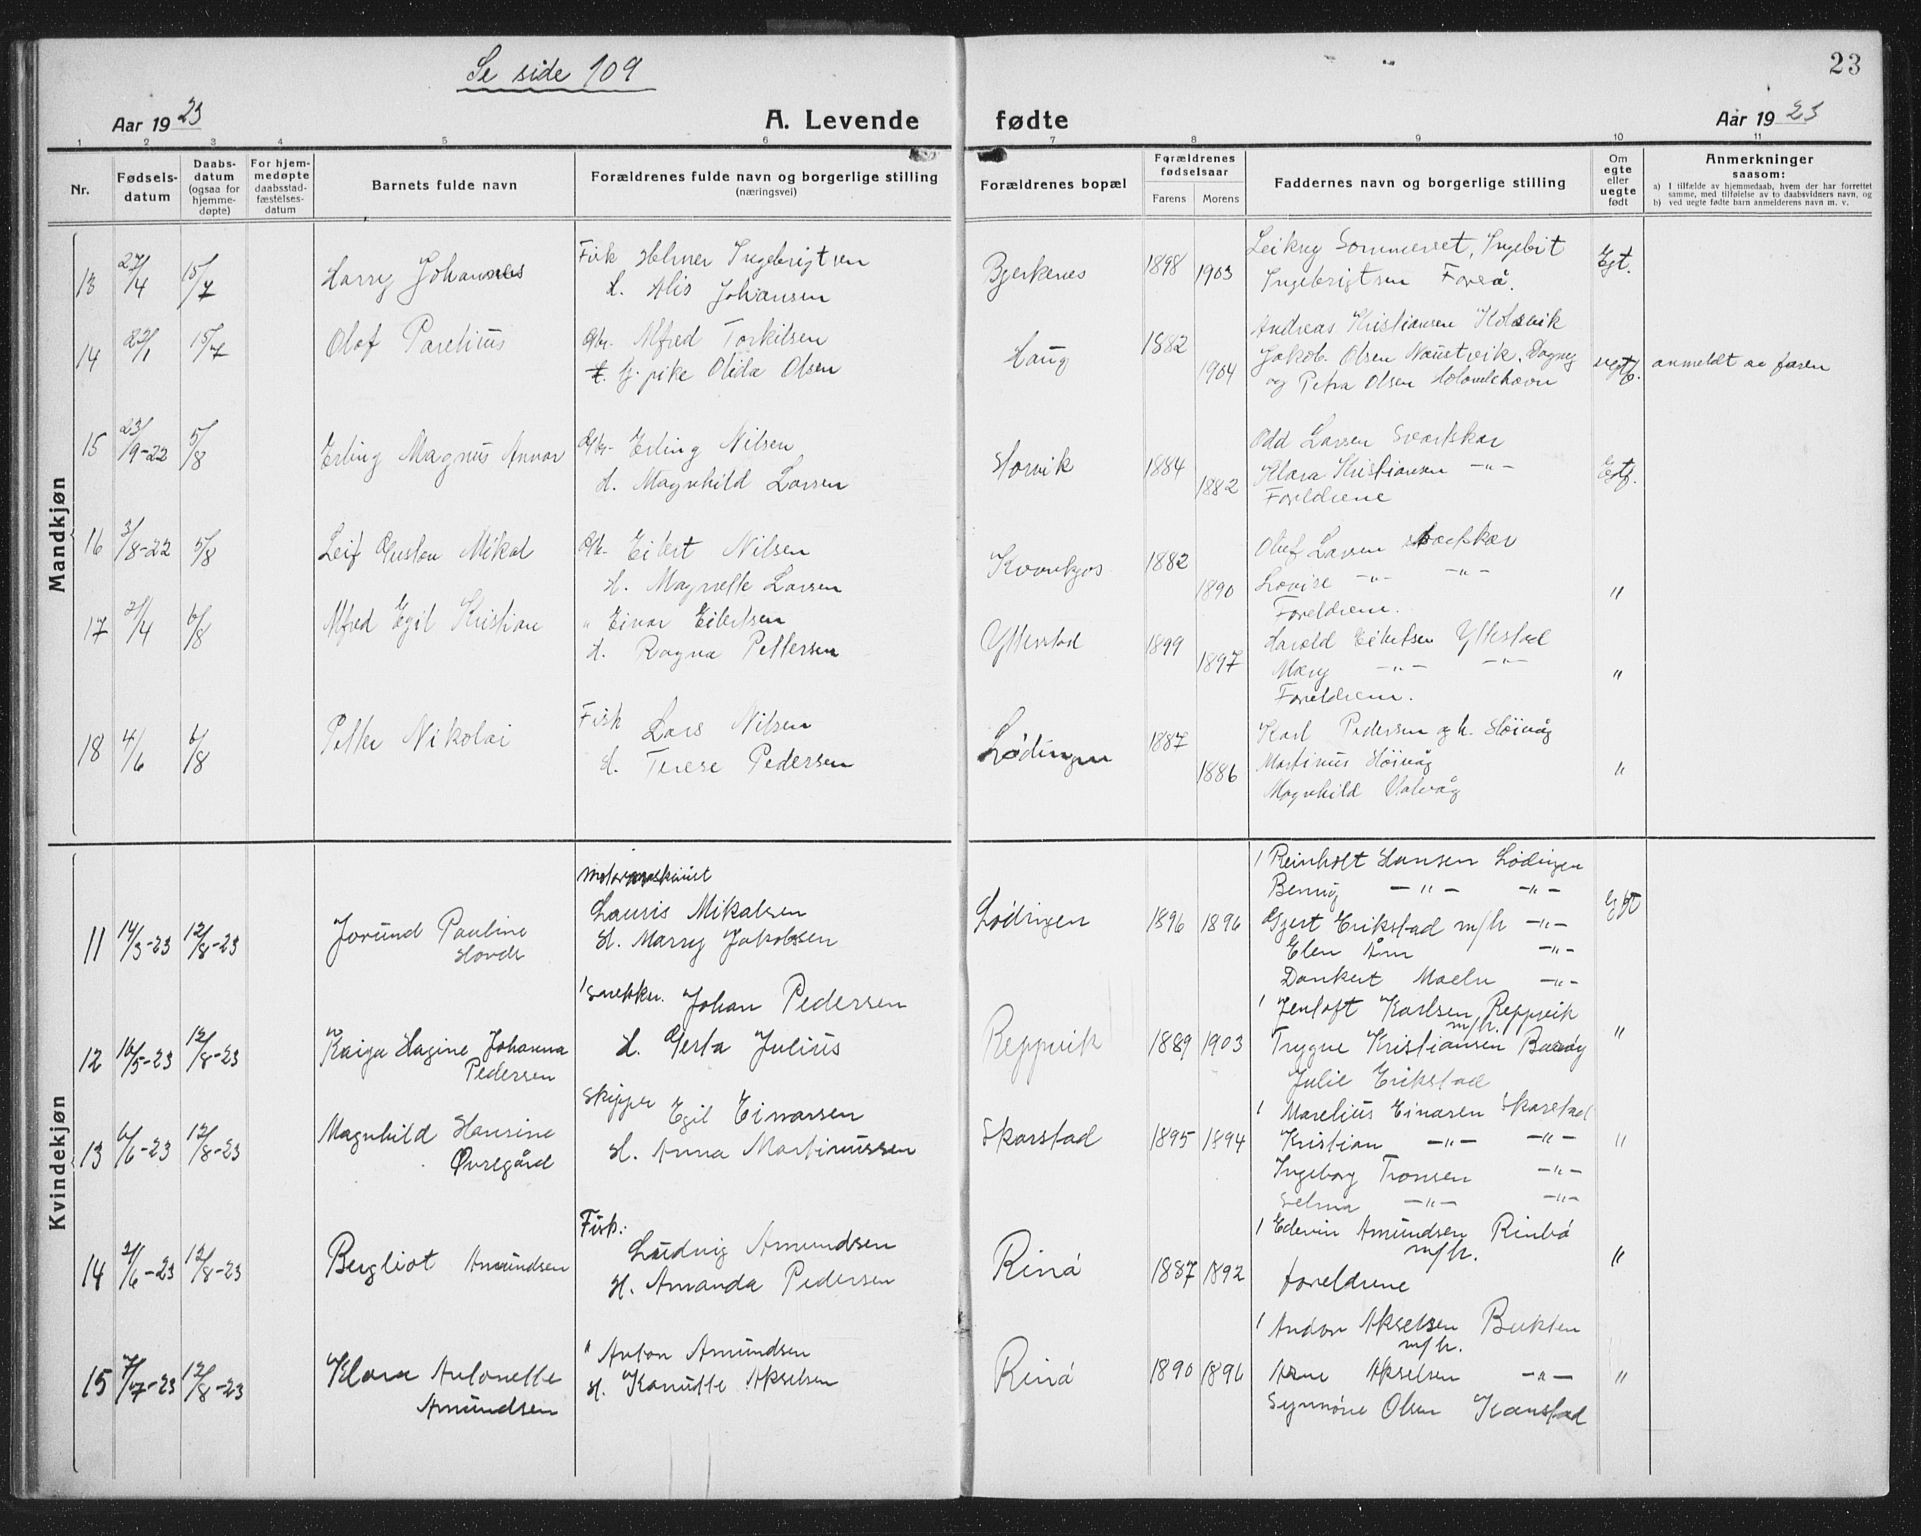 Se side 109
23
Aar 1923
A. Levende fødte
Aar 1923
1 2 3 4 5 6 7 8 9 10 11
Nr.
Fødselsdatum
Daabsdatum (ogsaa for hjemmedøpte)
For hjemmedøpte daabsstadfæstelsesdatum
Barnets fulde navn
Forældrenes fulde navn og borgerlige stilling (næringsvei)
Forældrenes bopæl
Forældrenes fødselsaar
Farens Morens
Faddernes navn og borgerlige stilling
Om egte eller uegte født
Anmerkninger saasom:
a) I tilfælde av hjemmedaab, hvem der har forrettet samme, med tilføielse av to daabsvidners navn, og
b) ved uegte fødte barn anmelderens navn m. v.
Mandkjøn
13 27/4 15/7 Harry Johannes Fisk Helmer Ingebrigtsen Bjerkenes 1898 1903 Leikny Sommerset, Ingebrit Egt.
H. Alis Johansen Ingebrigtsen Foreå.
14 22/1 15/7 Olaf Parelius Gbr. Alfred Torkilsen Haug 1882 1904 Andreas Kristiansen Kolsvik
t. g. pike Olida Olsen Jakob Olsen Naustvik, Dagny uegt. anmeldt av faren
og Petra Olsen
15 23/9-22 5/8 Erling Magnus Annar Gbr. Erling Nilsen Horvik 1884 1882 Odd Larsen Svartskar Egt.
H. Magnhild Larsen Klara Kristiansen -"-
Foreldrene
16 3/8-22 5/8 Leif Gustav Mikal Gbr. Eilert Nilsen 1882 1890 Oluf Larsen Svartskar
H. Magnelle Larsen Lovise -"- -"- "
Foreldrene.
17 2/4 6/8 Alfred Egil Kristian " Einar Eilertsen Ytterstad 1899 1897 Harold Eilertsen Yttestad
H. Ragna Pettersen Mary -"- -"- "
Foreldrene.
18 4/6 6/8 Petter Nikolai Fisk Lars Nilsen Lødingen 1887 1886 Karl Pedersen og h. Høivåg
H. Terese Pedersen Martinus Høivåg "
Magnhild Valvåg
Kvindekjøn
11 14/3-23 12/8-23 Jorund Pauline Hovde motormaskinist Lødingen 1896 1896 1 Reinholt Hansen Lødingen Egt
Lauris Mikalsen Benny -"- -"-
H. Marry Jakobsen Gjert Erikstad m/h -"-
Elen Åm -"-
Dankert Moeln -"-
12 16/5-23 12/8-23 Kaiga Hagine Johanna Pedersen snekker. Johan Pedersen Reppvik 1889 1903 1 Jentoft Karlsen Reppvik m/h. "
H. Gerta Julius Trygve Kristiansen Barøy
Julie Erikstad
13 6/6-23 12/8-23 Magnhild Hansine Øvregård Skipper Egil Einarsen Skarstad 1895 1894 1 Marelius Einarsen Skarstad
H. Anna Martinussen Kristian -"- -"- "
Ingeborg Tronsen -"-
Selma -"- -"-
14 2/6-23 12/8-23 Bergliot Amundsen Fisk: Ludvig Amundsen Rinø 1887 1892 1 Edevin Amundsen Rinbø m/h. "
H. Amanda Pedersen foreldrene
15 7/7-23 12/8-23 Klara Antonette Amundsen " Anton Amundsen Rinø 1890 1896 1 Andor Akselsen Bukten m/h.
H. Kanutte Akselsen Arne Akselsen -"- "
Synnøve Olsen Kanstad